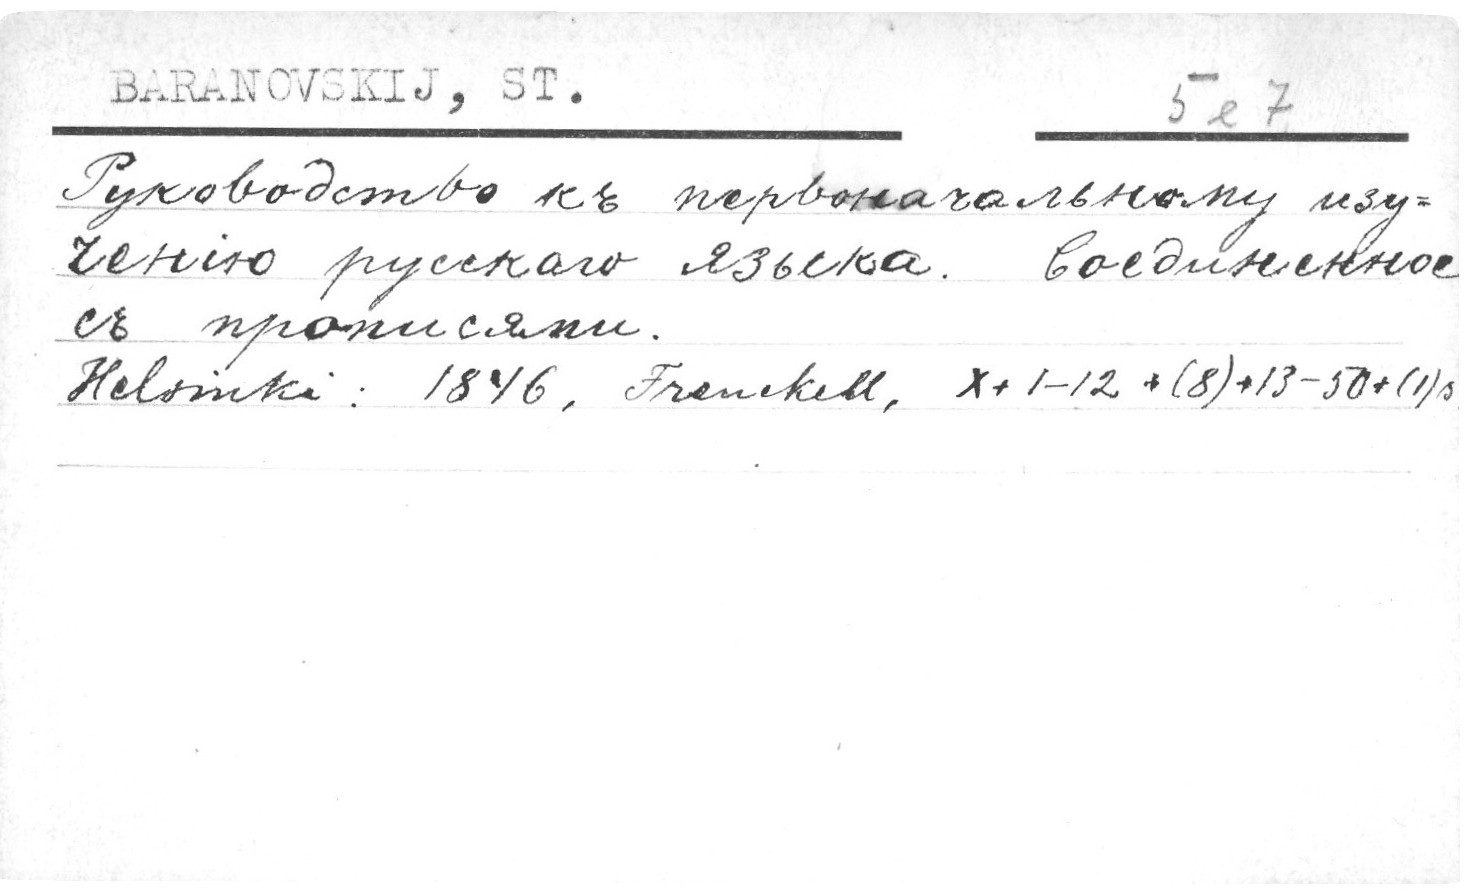 BARANOVSKIJ, ST.
5 e 7
Руководство къ первоначальному изу=
ченію русскаго языка. Соединенное
съ прописями.
Helsinki: 1846, Frenckell, X+1-12+(8)+13-50+(1)s